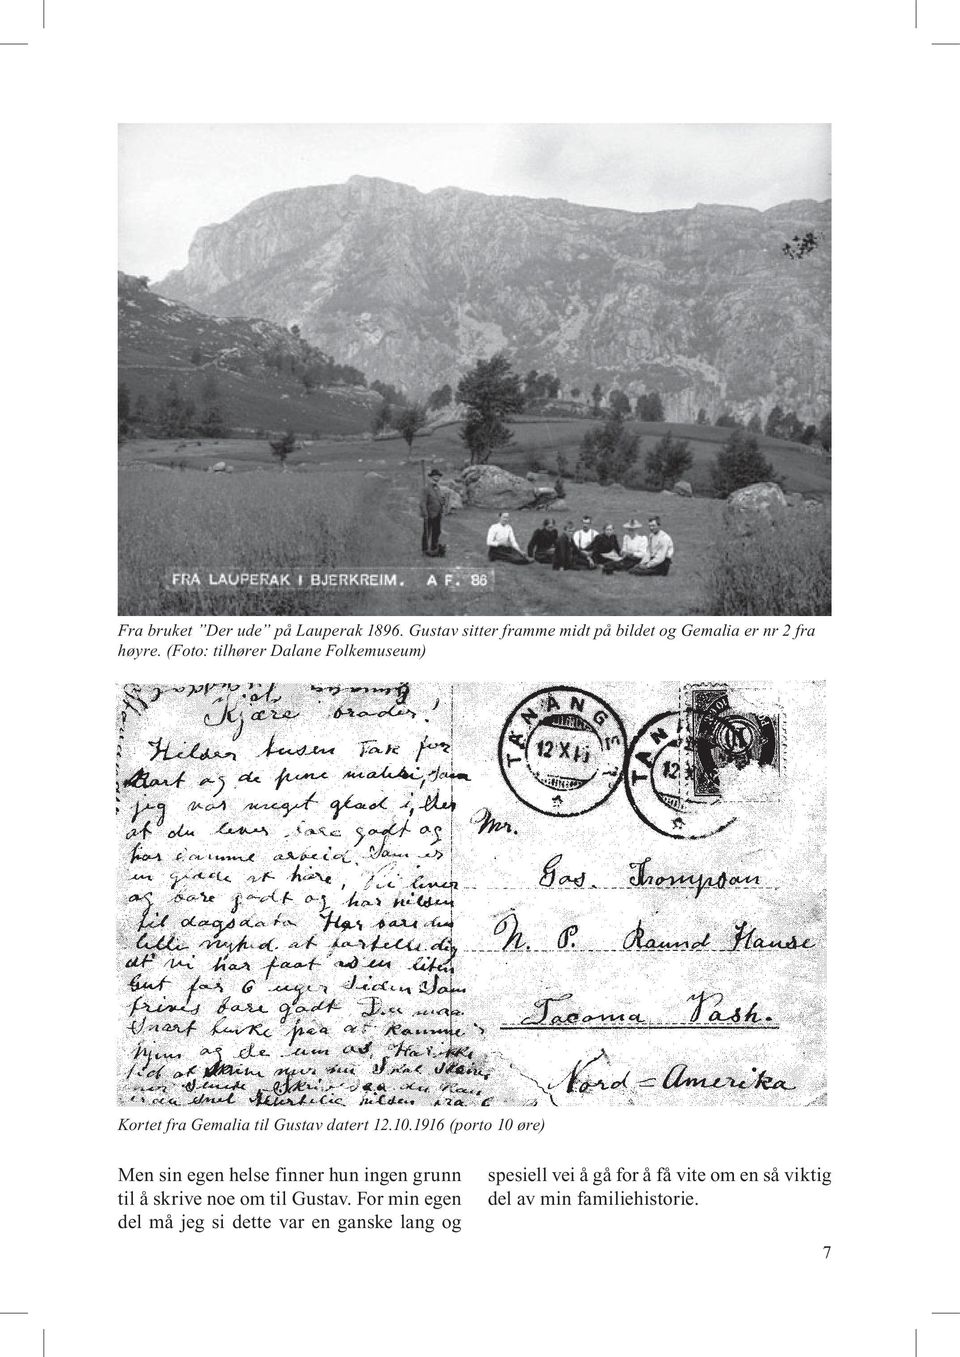 FRA LAUPERAK I BJERKREIM. A F. 86
Fra bruket ”Der ude” på Lauperak 1896. Gustav sitter framme midt på bildet og Gemalia er nr 2 fra
høyre. (Foto: tilhører Dalane Folkemuseum)
Kjære broder!
Hilsen tusen Tak for
Kart og de pene
jeg var meget glad i,
at du lever godt og
har samme arbeid Som er
en glede at høre, Vi lever
og bare godt og har hilsen
til dagsdato Har bare den
lille nyhed at fortelle dig
at vi har faat en liten
Gut for 6 uger Siden Som
trives bare godt Du maa
Snart tenke paa at komme
hjem og Har ikke
tid at Skrive mer nu Skal Skrive
Hjertelig hilsen fra G
TANANGER
12 X 16
TANAN
12 X
Mr.
Gas. Thompson
N. P. Raund Hause
Tacoma Vash.
Nord = Amerika
Kortet fra Gemalia til Gustav datert 12.10.1916 (porto 10 øre)
Men sin egen helse finner hun ingen grunn
til å skrive noe om til Gustav. For min egen
del må jeg si dette var en ganske lang og
spesiell vei å gå for å få vite om en så viktig
del av min familiehistorie.
7